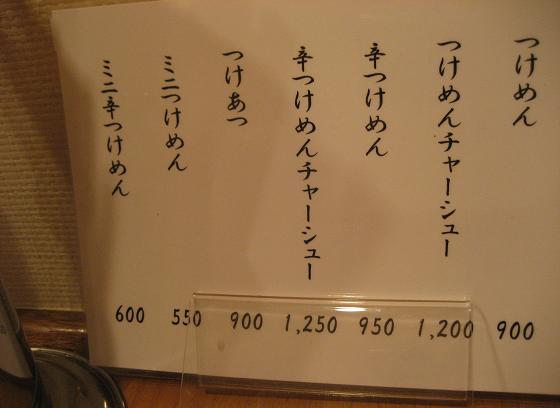 つけめん 900
つけめんチャーシュー 1,200
辛つけめん 950
辛つけめんチャーシュー 1,250
つけあつ 900
ミニつけめん 550
ミニ辛つけめん 600